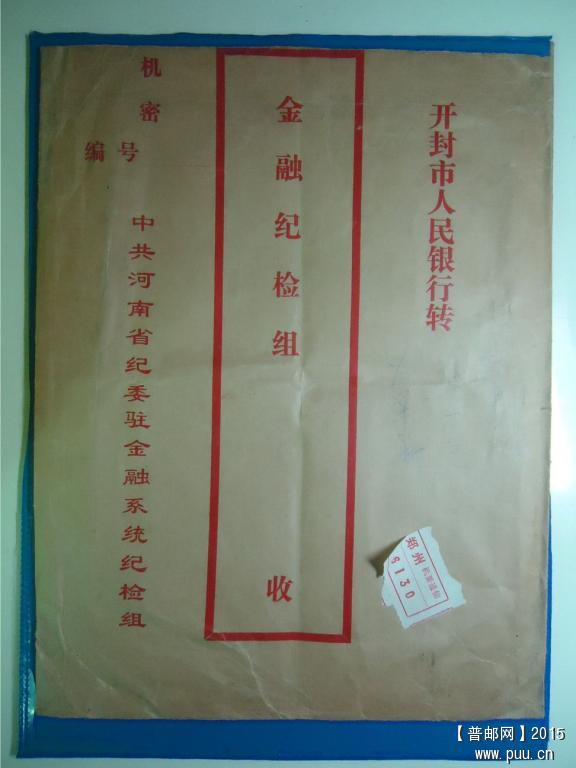 开封市人民银行转
金融纪检组 收
机密
编号
中共河南省纪委驻金融系统纪检组
郑州
机要挂号
8130
【普邮网】2015
www.puu.cn